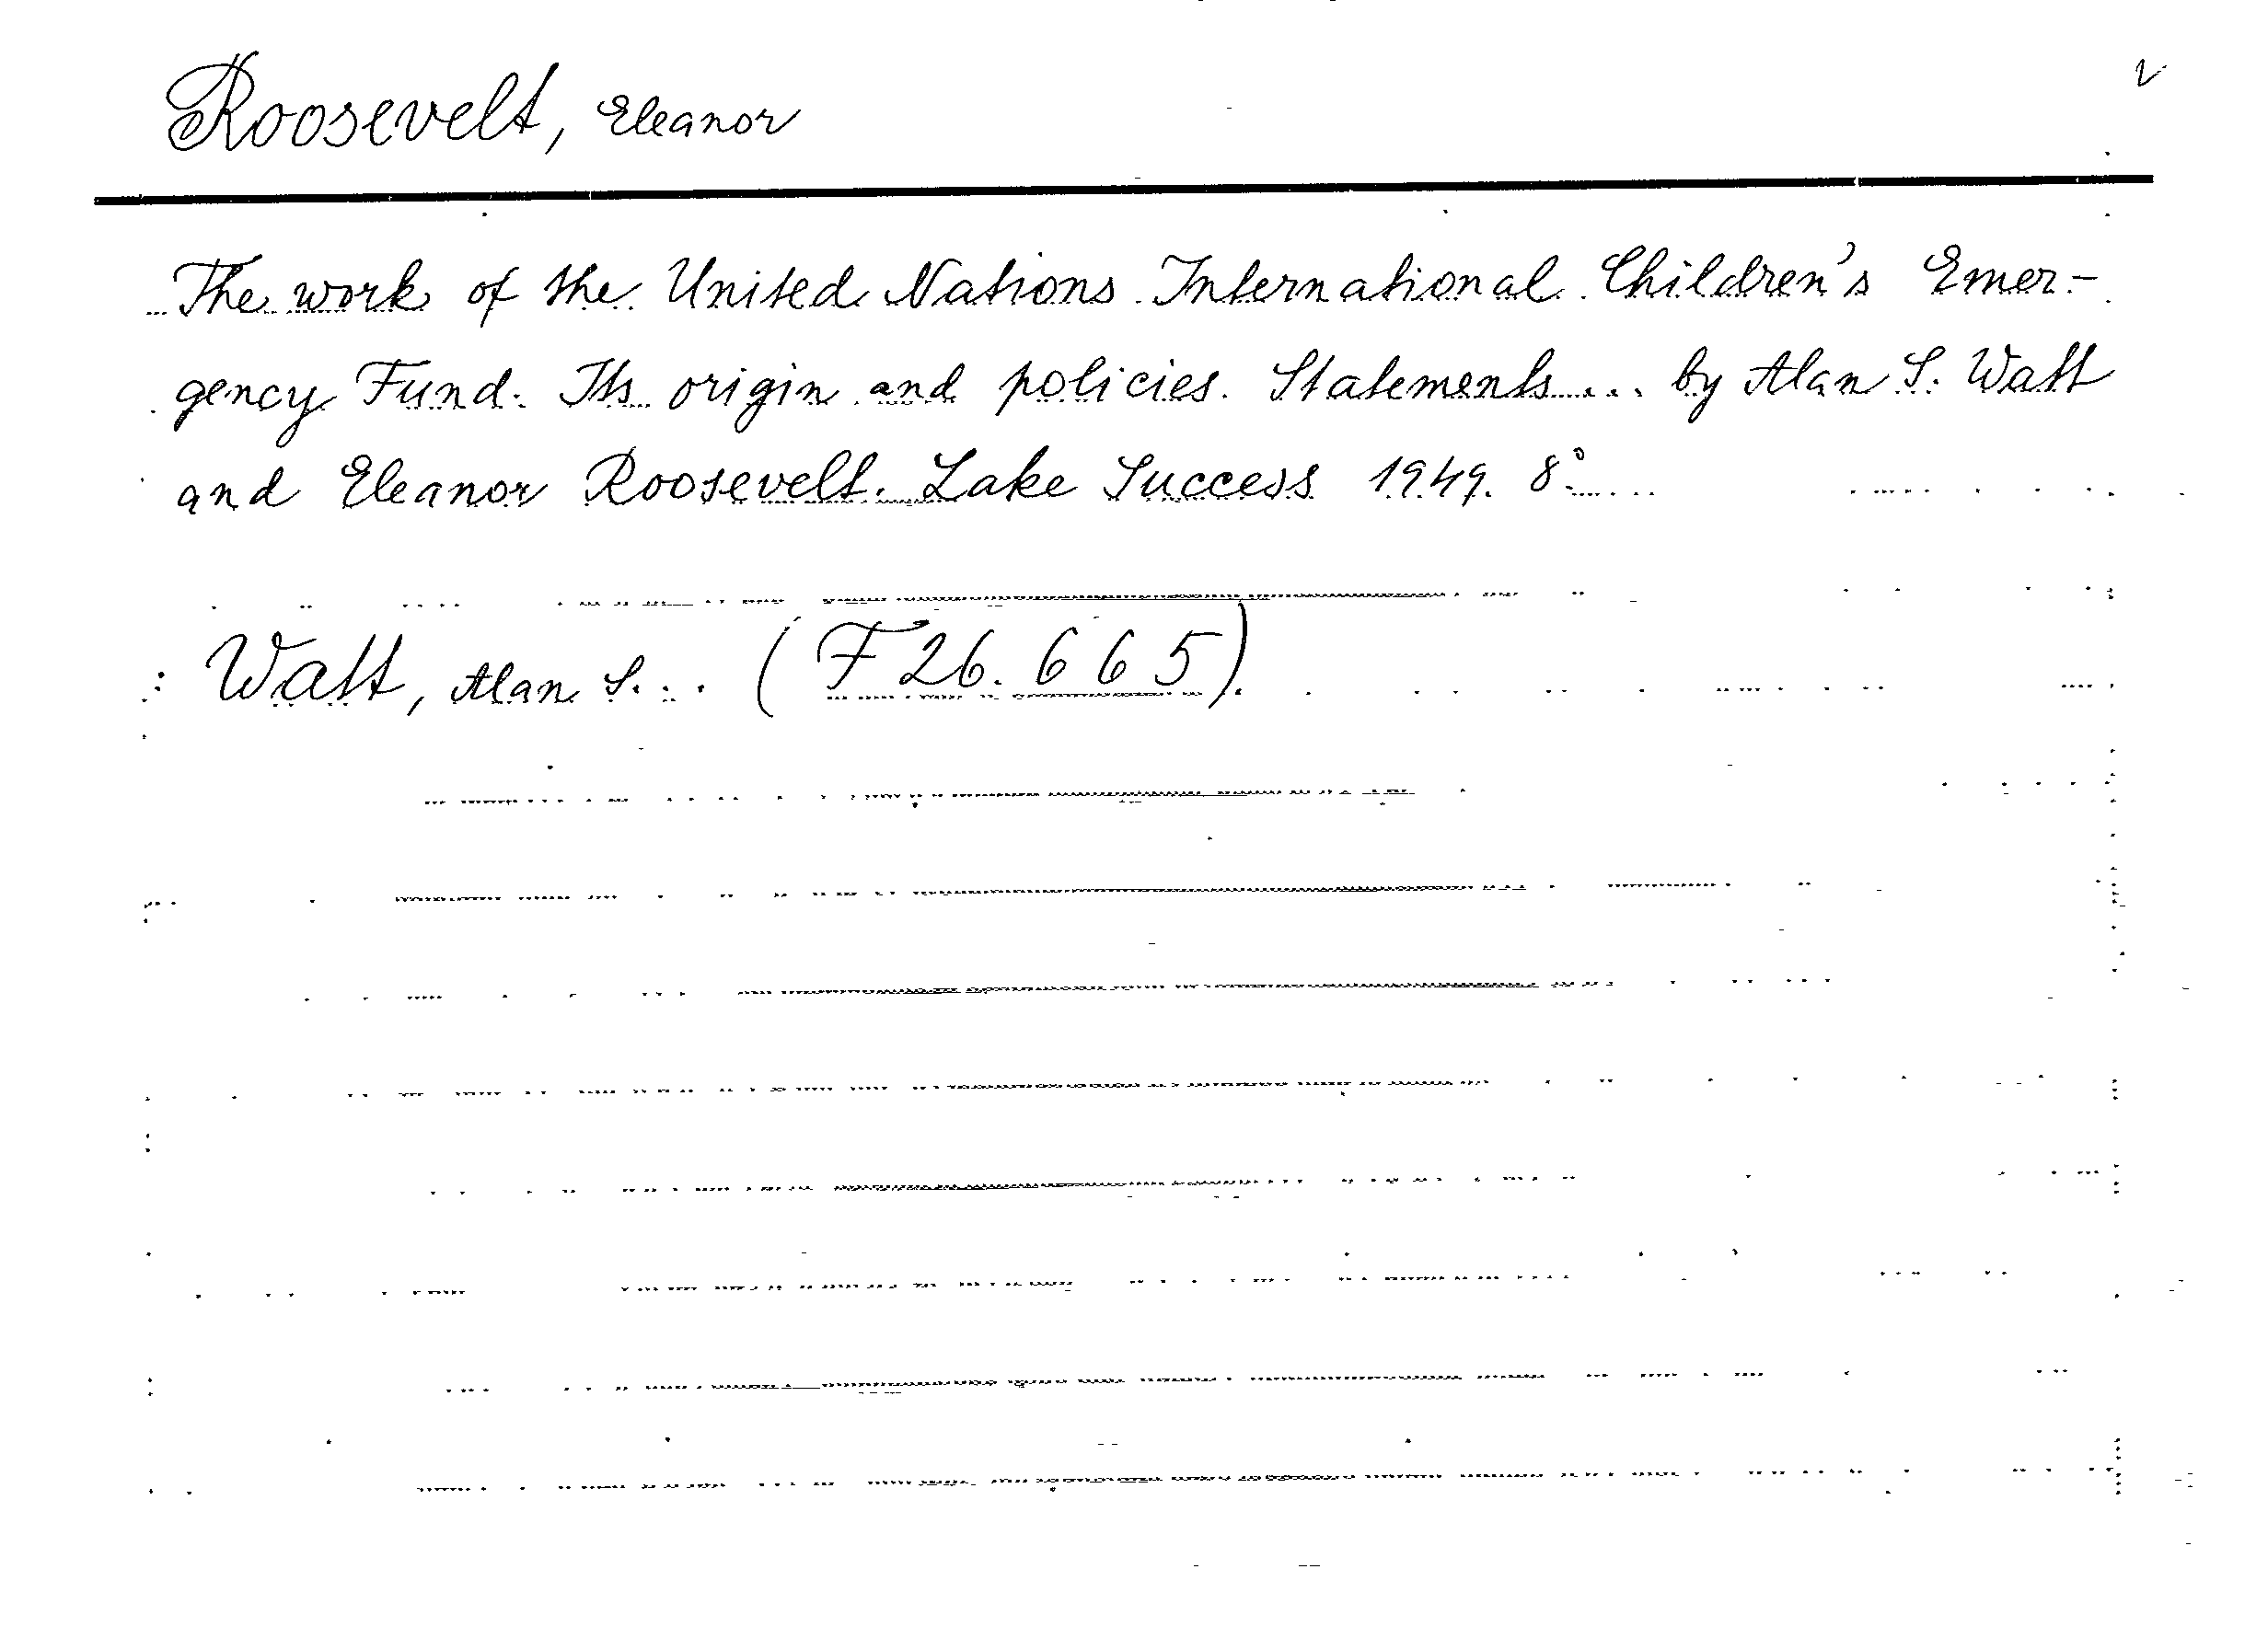 Roosevelt, Eleanor
The work of the United Nations International Children's Emer-
gency Fund. Its origin and policies. Statements... by Alan S. Watt
and Eleanor Roosevelt. Lake Success 1949. 8°
: Watt, Alan S... (F 26.665).